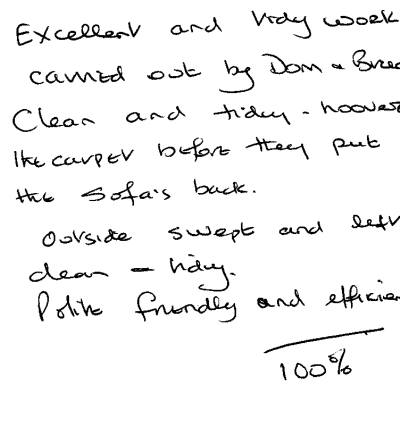 Excellent and tidy work
carried out by Dom &
Clean and tidy - hoover
the carpet before they put
the sofa's back.
Outside swept and left
clean - tidy.
Polite friendly and efficien
100%